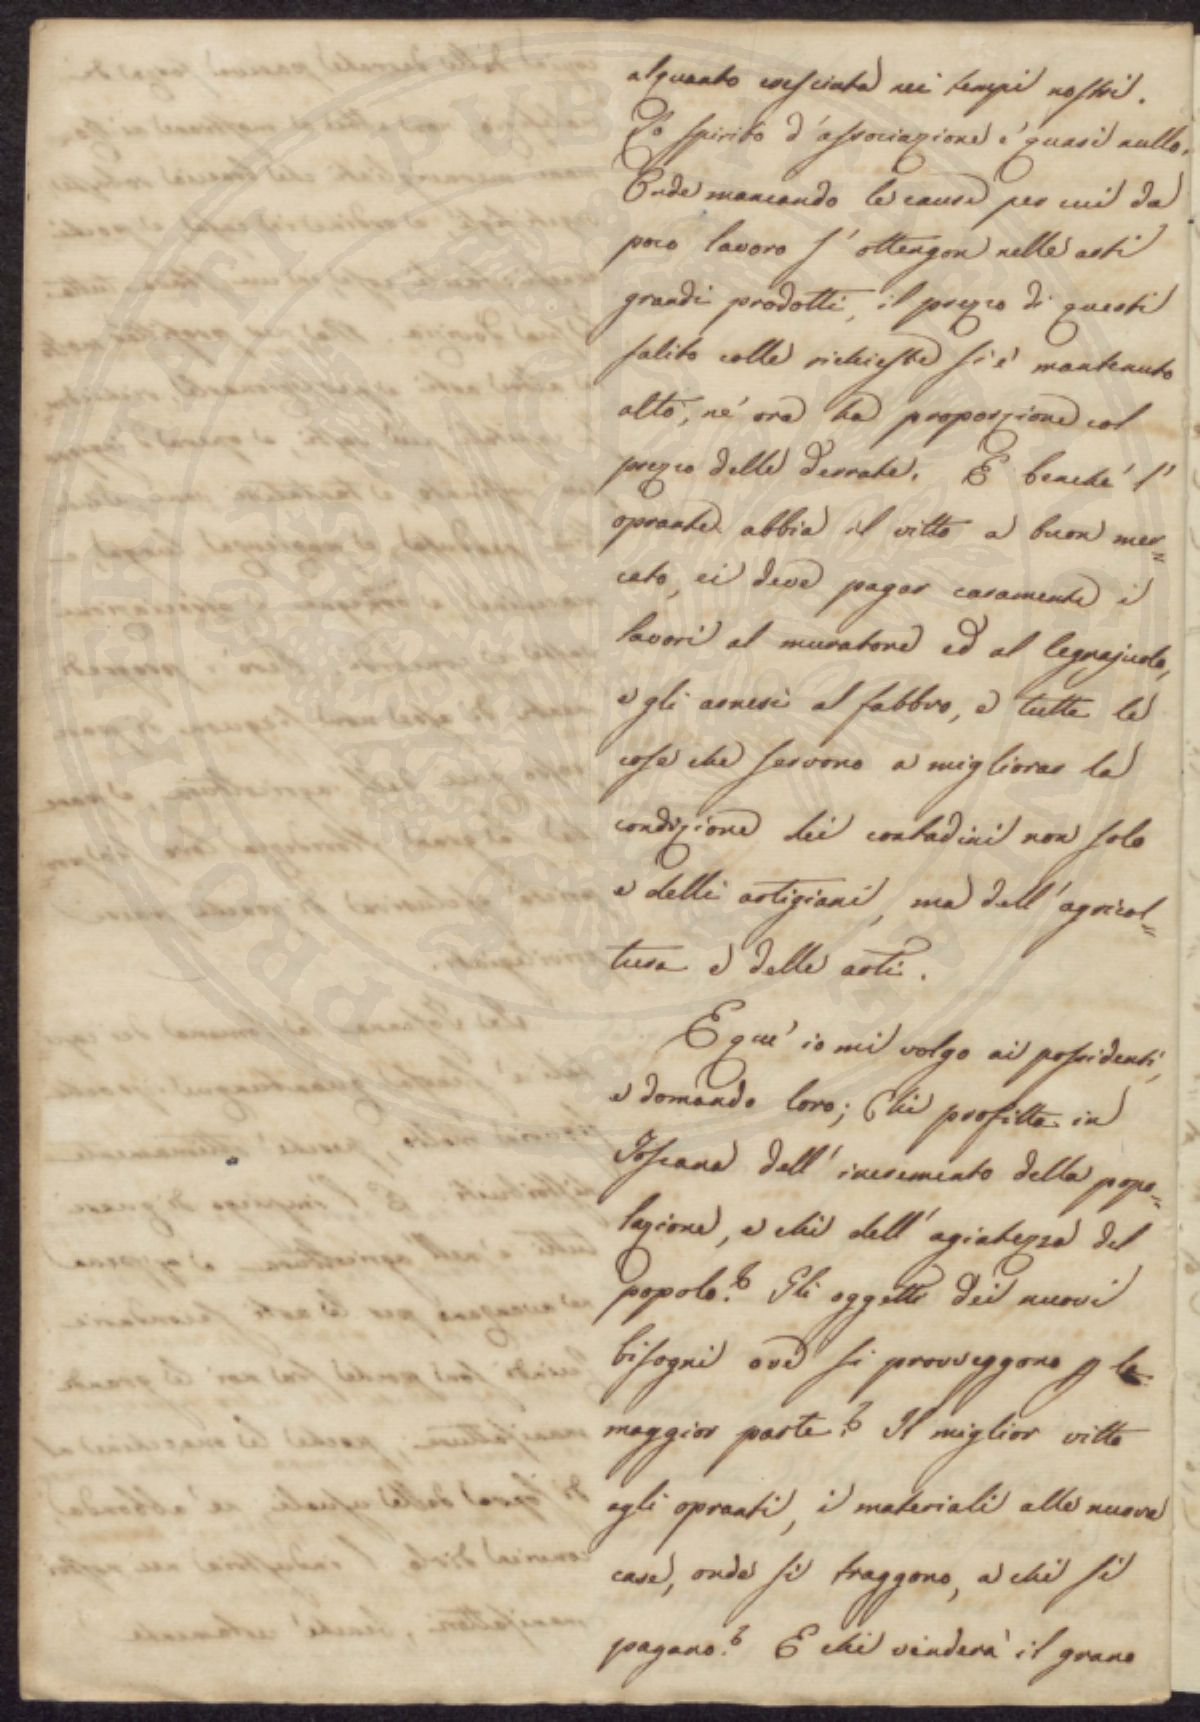 alquanto cresciuta nei tempi nostri.
Lo spirito d'associazione è quasi nullo.
Onde mancando le cause per cui da
poco lavoro s'ottengon nelle arti
grandi prodotti, il prezzo di questi
salito colle richieste si è mantenuto
alto, nè ora ha proporzione col
prezzo delle derrate. E benchè l'
oprante abbia il vitto a buon mer=
cato, ei deve pagar caramente i
lavori al muratore ed al legnajuolo,
e gli arnesi al fabbro, e tutte le
cose che servono a migliorar la
condizione dei contadini non solo
e delli artigiani, ma dell'agricol=
tura e delle arti.
E quì io mi volgo ai possidenti,
e domando loro; Chi profitta in
Toscana dell'incremento della popo=
lazione, e chi dell'agiatezza del
popolo? Gli oggetti dei nuovi
bisogni ove si provveggono p la
maggior parte? Il miglior vitto
agli opranti, i materiali alle nuove
case, onde si traggono, a chi si
pagano? E chi venderà il grano